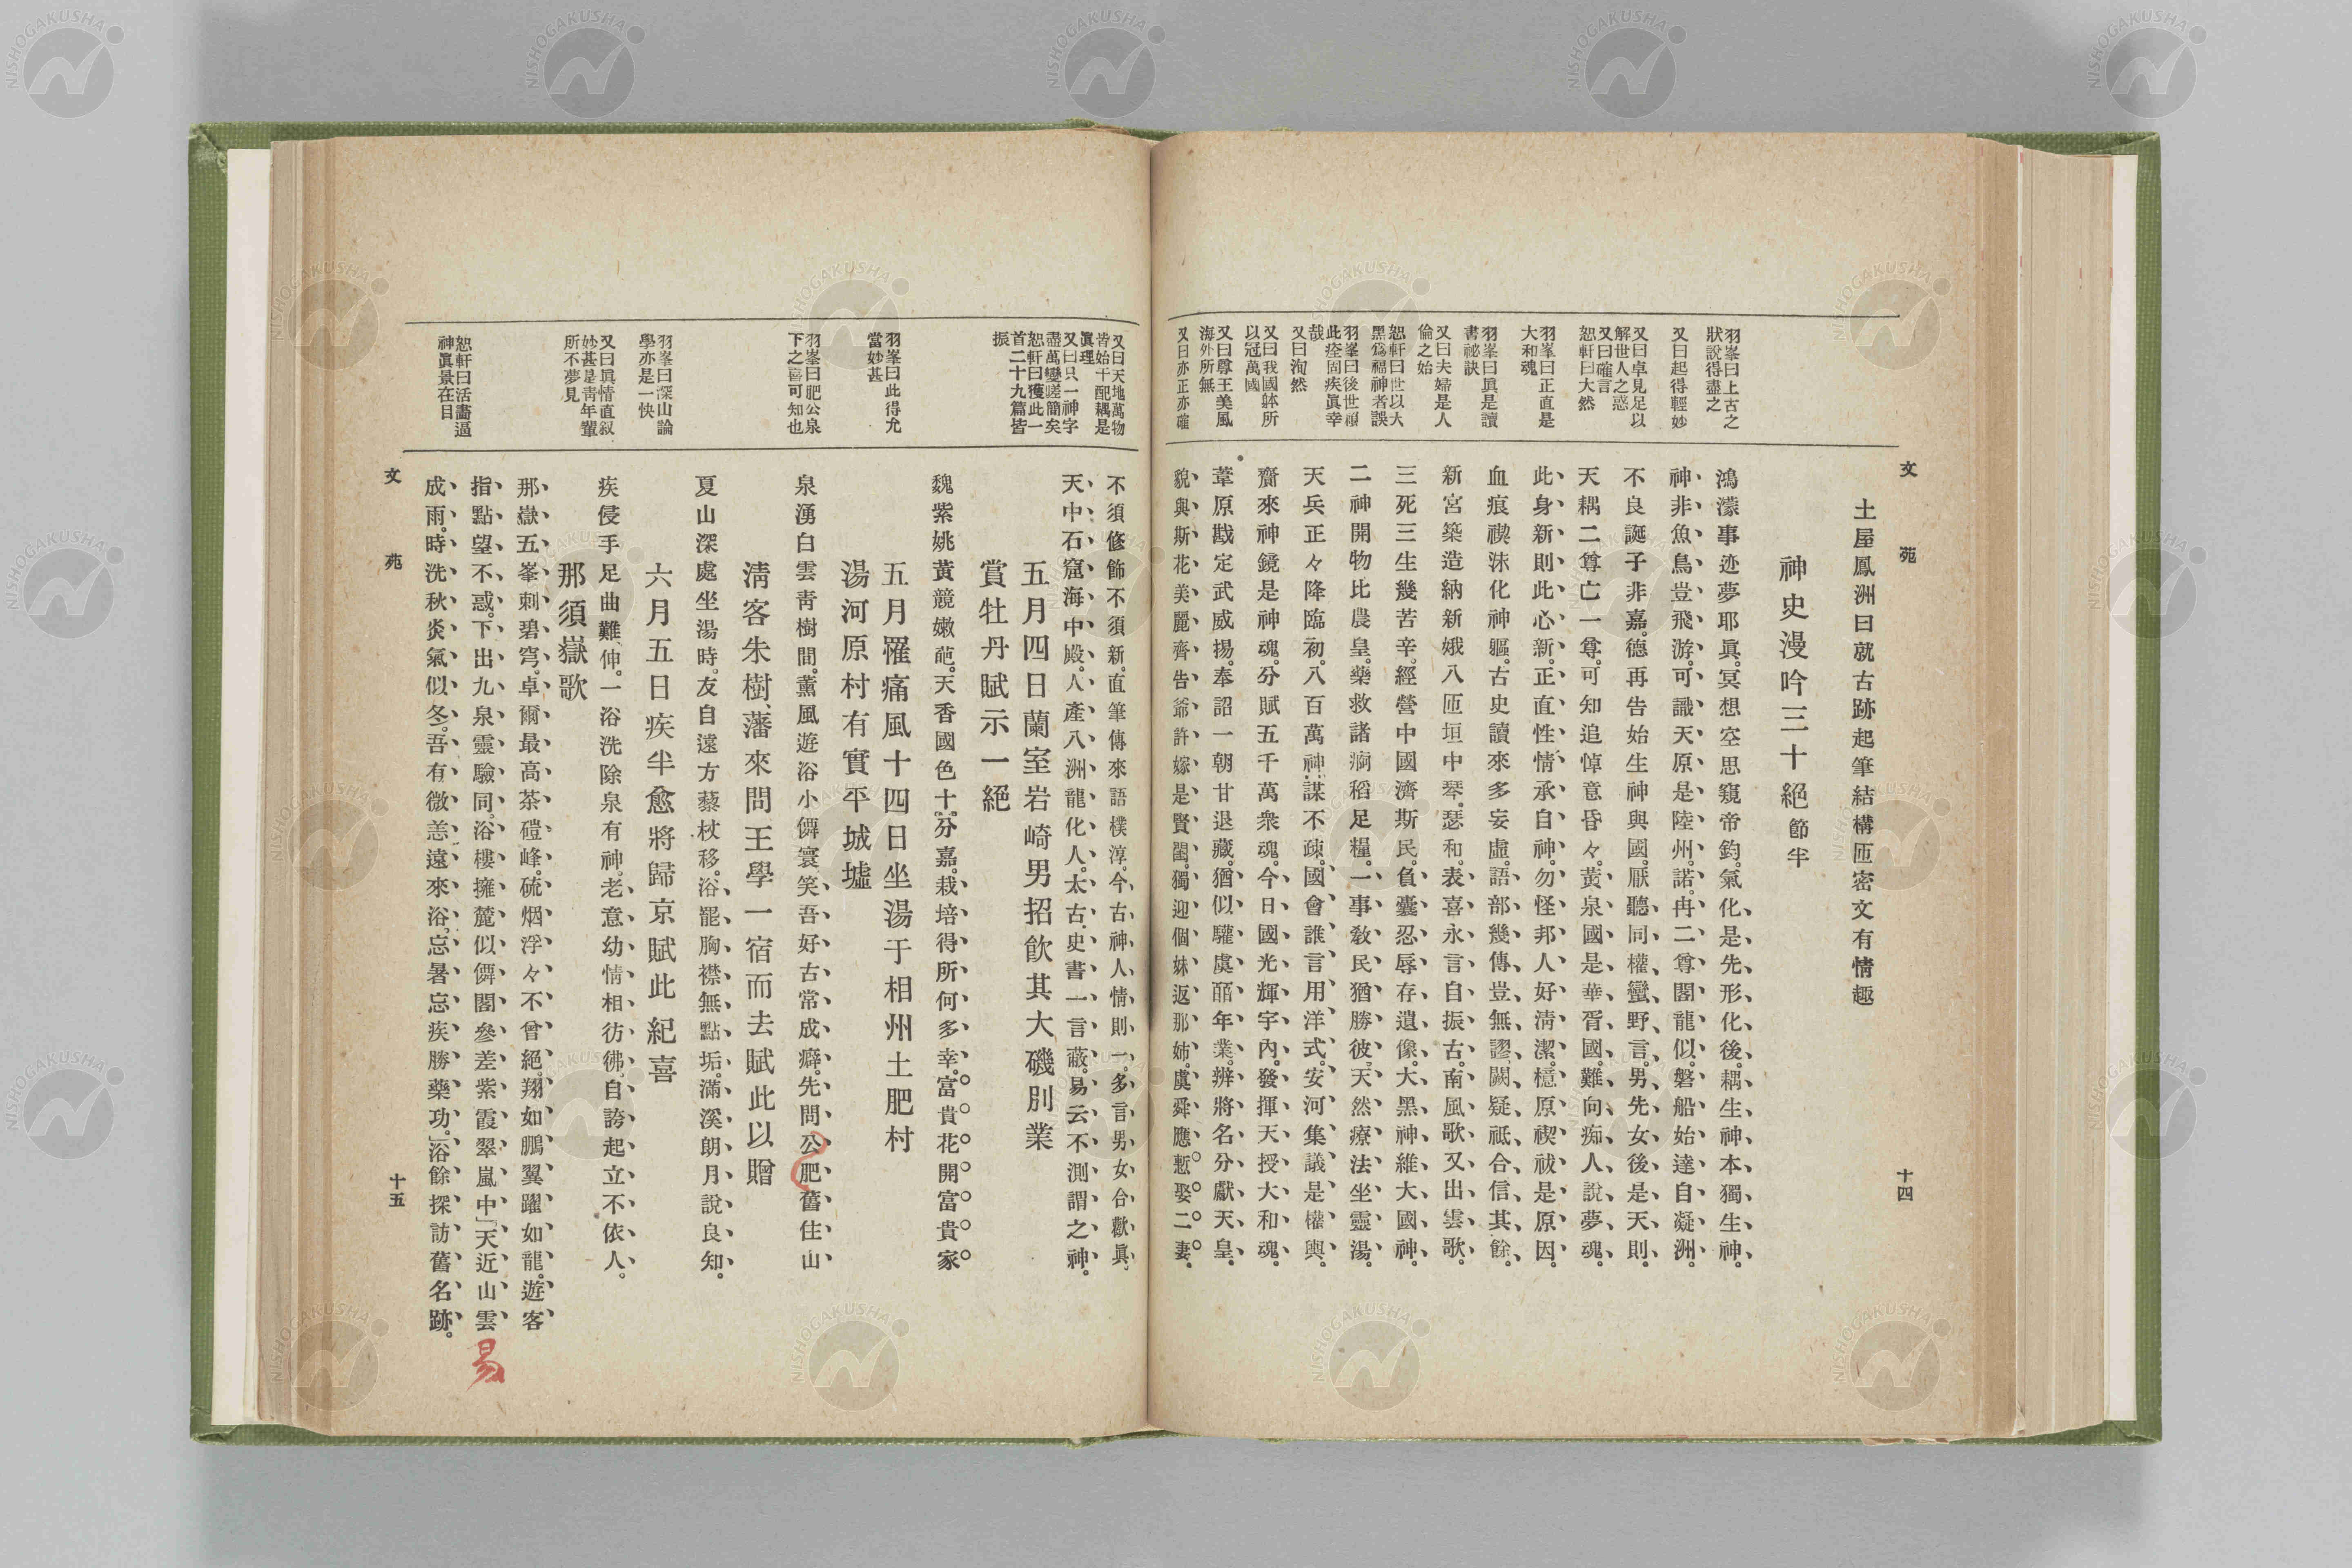 文苑
十四
土屋鳳洲曰就古跡起筆結構匝密文有情趣
神史漫吟三十絕節半
鴻濛事迹夢耶眞。冥想空思窺帝鈞。氣化是先形化後。耦生神本獨生神。
神非魚鳥豈飛游。可識天原是陸州。諾冉二尊閣龍似。磐船始達自凝洲。
不良誕子非嘉。德再告始生神與國。厭聽同權蠻野言。男先女後是天則。
天耦二尊亡一尊。可知追悼意昏々。黃泉國是華胥國。難向痴人說夢魂。
此身新則此心新。正直性情承自神。勿怪邦人好淸潔。檍原禊祓是原因。
血痕禊沫化神軀。古史讀來多妄虛。語部幾傳豈無謬。闕疑祗合信其餘。
新宮築造納新娥八匝垣中琴瑟和。表喜永言自振古。南風歌又出雲歌。
三死三生幾苦辛。經營中國濟斯民。負囊忍辱存遺像。大黑神維大國神。
二神開物比農皇。藥救諸痾稻足糧。一事敎民猶勝彼。天然療法坐靈湯。
天兵正々降臨初。八百萬神謀不疎。國會誰言用洋式。安河集議是權輿。
齎來神鏡是神魂。分賦五千萬衆魂。今日國光輝宇內。發揮天授大和魂。
葦原戡定武威揚。奉詔一朝甘退藏。猶似驩虞皕年業。辨將名分獻天皇。
貌與斯花美麗齊告爺許嫁是賢閨。獨迎個妹返那姉。虞舜應慙娶二妻。
羽峯曰上古之
狀說得盡之
又曰起得輕妙
又曰卓見足以
解世人之惑
又曰確言
恕軒曰大然
羽峯曰正直是
大和魂
羽峯曰眞是讀
書祕訣
又曰夫婦是人
倫之始
恕軒曰世以大
黑爲福神者誤
羽峯曰後世
此痊固疾眞幸
哉
又曰洵然
又曰我國躰所
以冠萬國
又曰尊王美風
海外所無
又曰亦正亦確
不須修飾不須新。直筆傳來語樸淳。今古神人情則一。多言男女合歡眞。
天中石窟海中殿。人產八洲龍化人。太古史書一言蔽。易云不測謂之神。
五月四日蘭室岩崎男招飮其大磯別業
賞牡丹賦示一絕
魏紫姚黃競嫩葩。天香國色十分嘉。栽培得所何多幸。富貴花開富貴家。
五月罹痛風十四日坐湯于相州土肥村
湯河原村有實平城墟
泉湧白雲靑樹間。薰風遊浴小僊寰。笑吾好古常成癖。先問公肥舊住山
淸客朱樹藩來問王學一宿而去賦此以贈
夏山深處坐湯時。友自遠方藜杖移。浴罷胸襟無點垢。滿溪朗月說良知。
六月五日疾半愈將歸京賦此紀喜
疾侵手足曲難伸。一浴洗除泉有神。老意幼情相彷彿。自誇起立不依人。
那須嶽歌
那嶽五峯刺碧穹。卓爾最高茶磑峰。硫烟浮々不曾絕。翔如鵬翼躍如龍。遊客
指點望不惑。下出九泉靈驗同。浴樓擁麓似僊閣參差紫霞翠嵐中」天近山雲
成雨。時洗秋炎氣似冬。吾有微恙遠來浴。忘暑忘疾勝藥功。」浴餘探訪舊名跡。
易
又曰天地萬物
皆始于配耦是
眞理
又曰只一神字
盡萬變嗟簡矣
恕軒曰獲此一
首二十九篇皆
振
羽峯曰此得尤
當妙甚
羽峯曰肥公泉
下之喜可知也
羽峯曰深山論
學亦是一快
又曰眞情直叙
妙甚是靑年輩
所不夢見
恕軒曰活畵逼
神眞景在目
文苑
十五